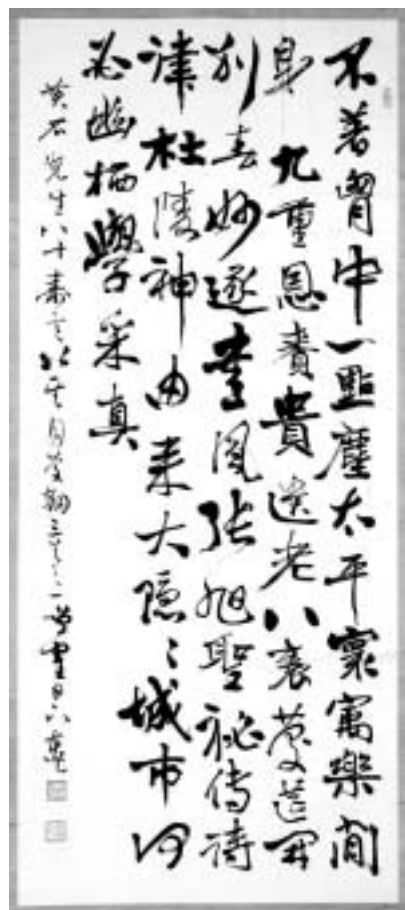 不著胷中一點塵太平寰寓樂閒
身九重恩賚貴遺老八袠慶筵開
別春妙逐書風張旭聖祕傳詩
律杜陵神由來大隱〻城市何
必幽栖學采真
黃石先生八十壽言